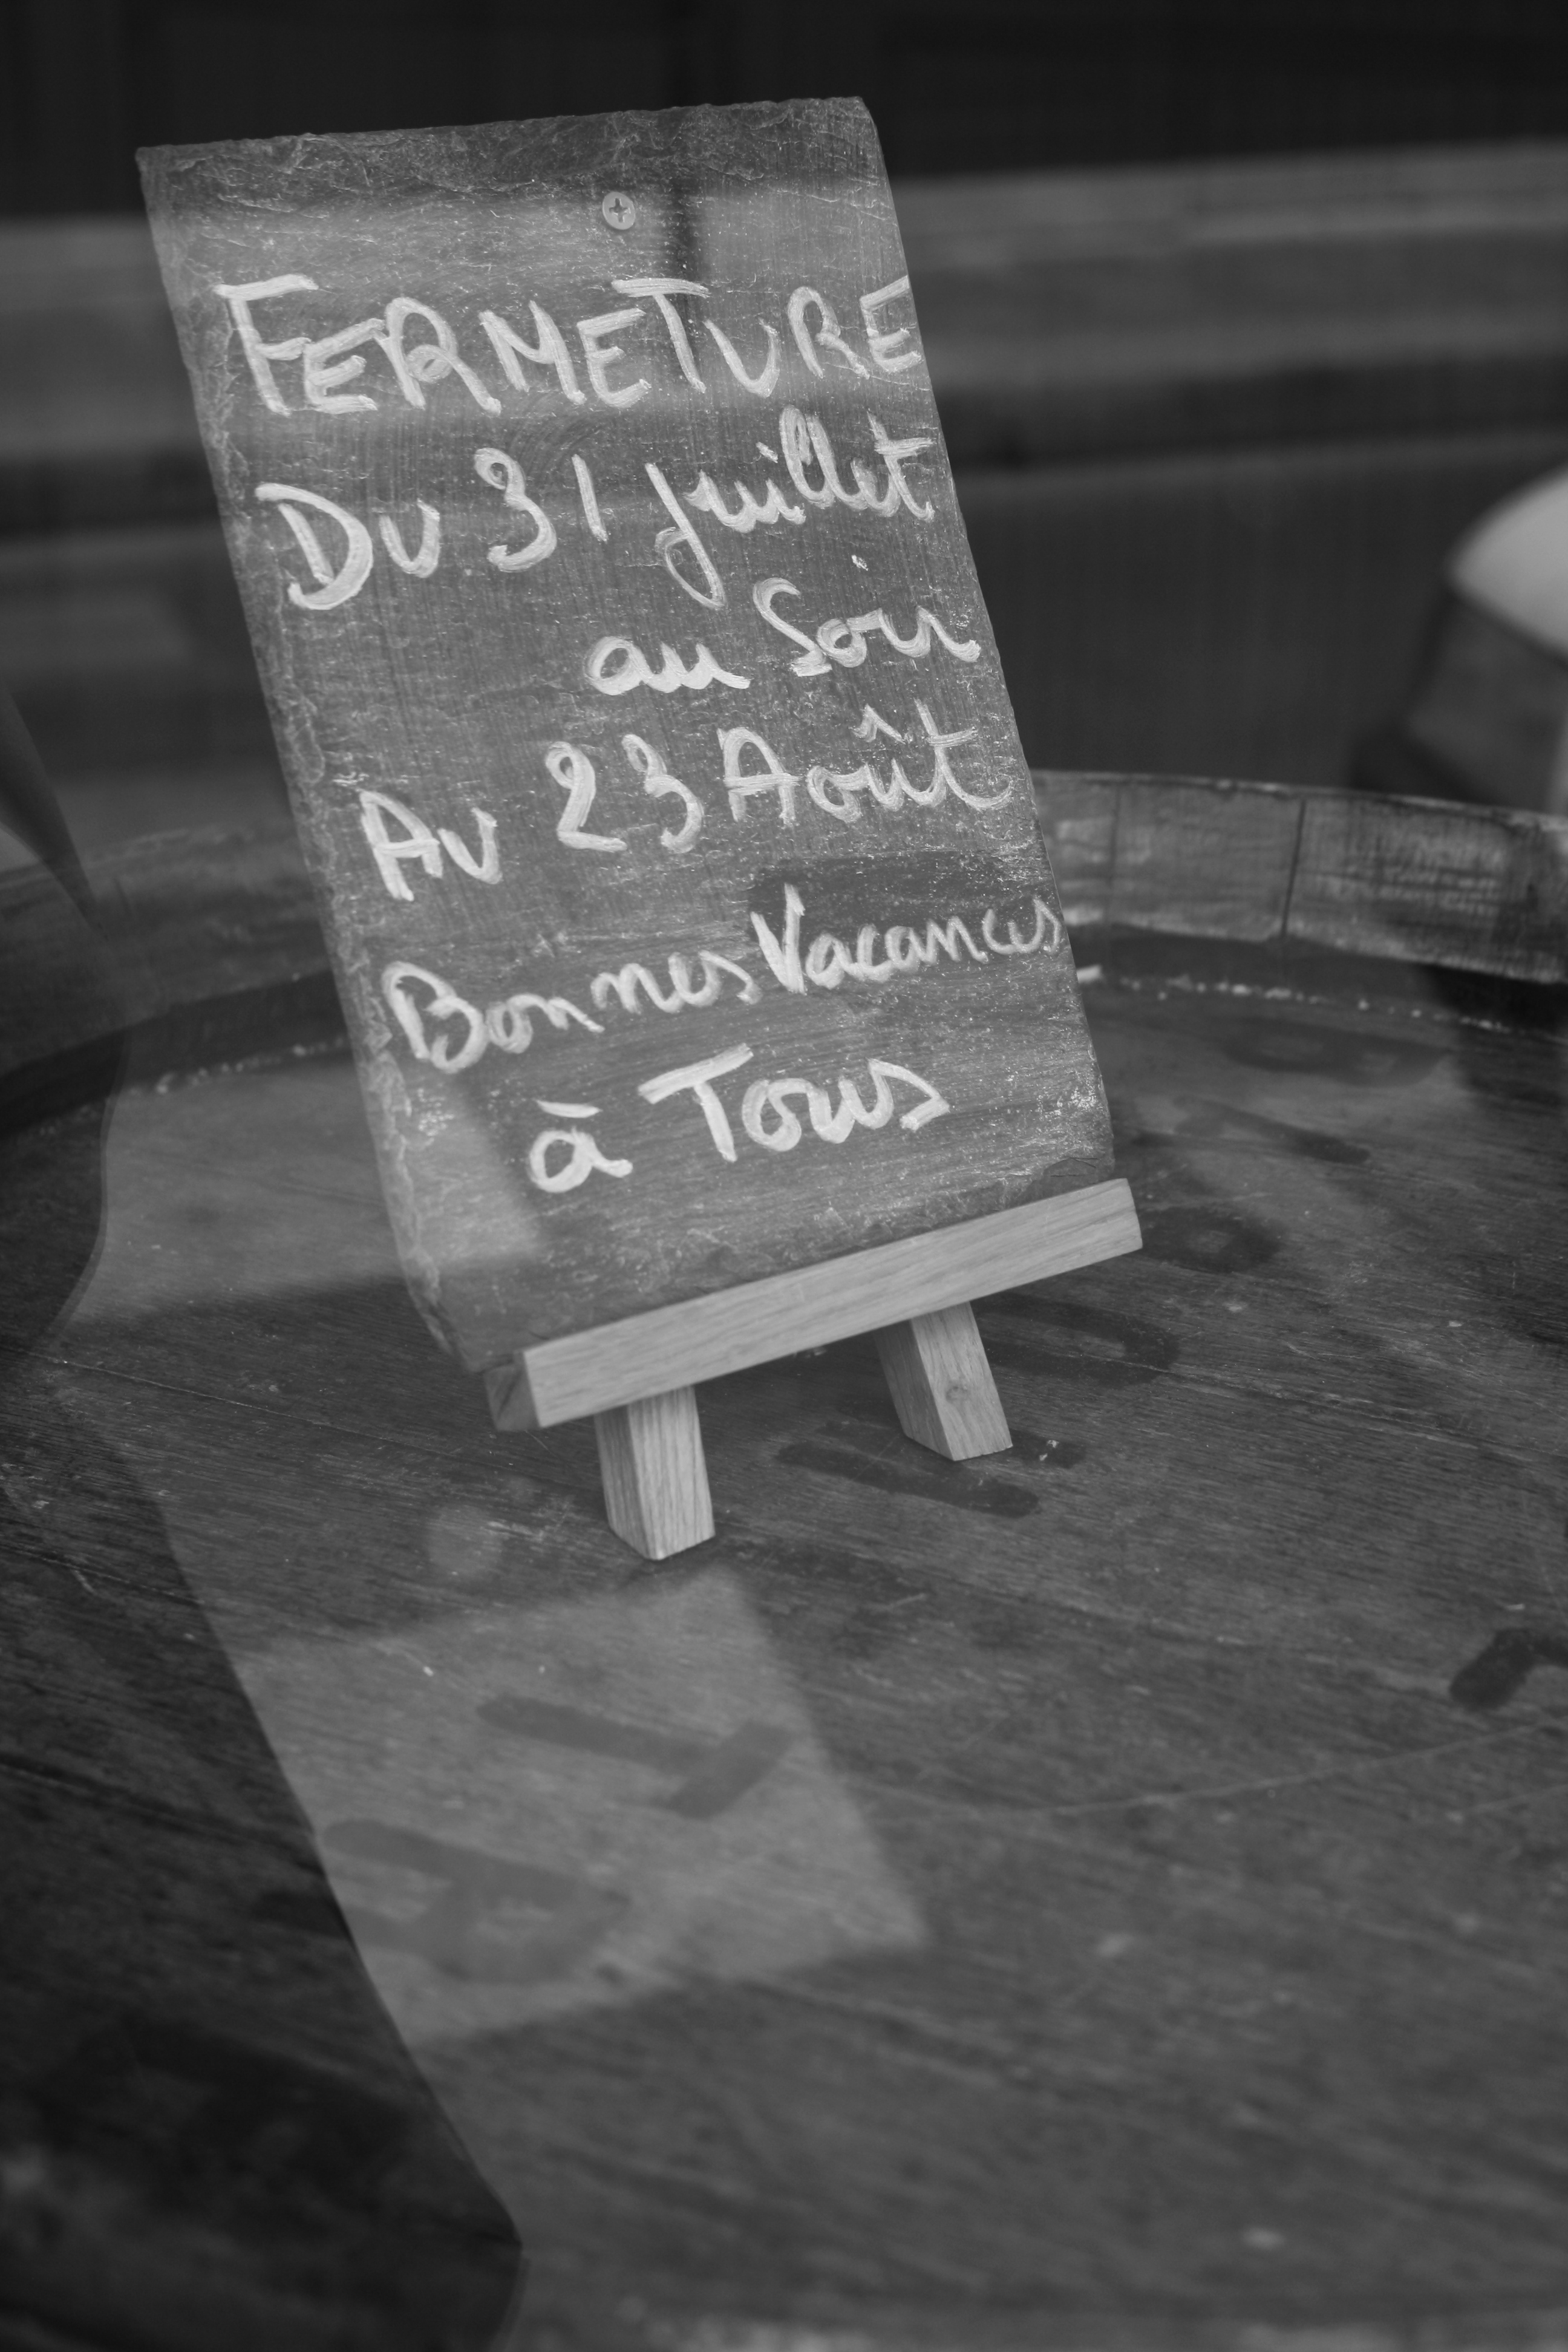 FERMETURE
DU 31 juillet
au Soir
AU 23 Août
Bonnes Vacances
à Tous